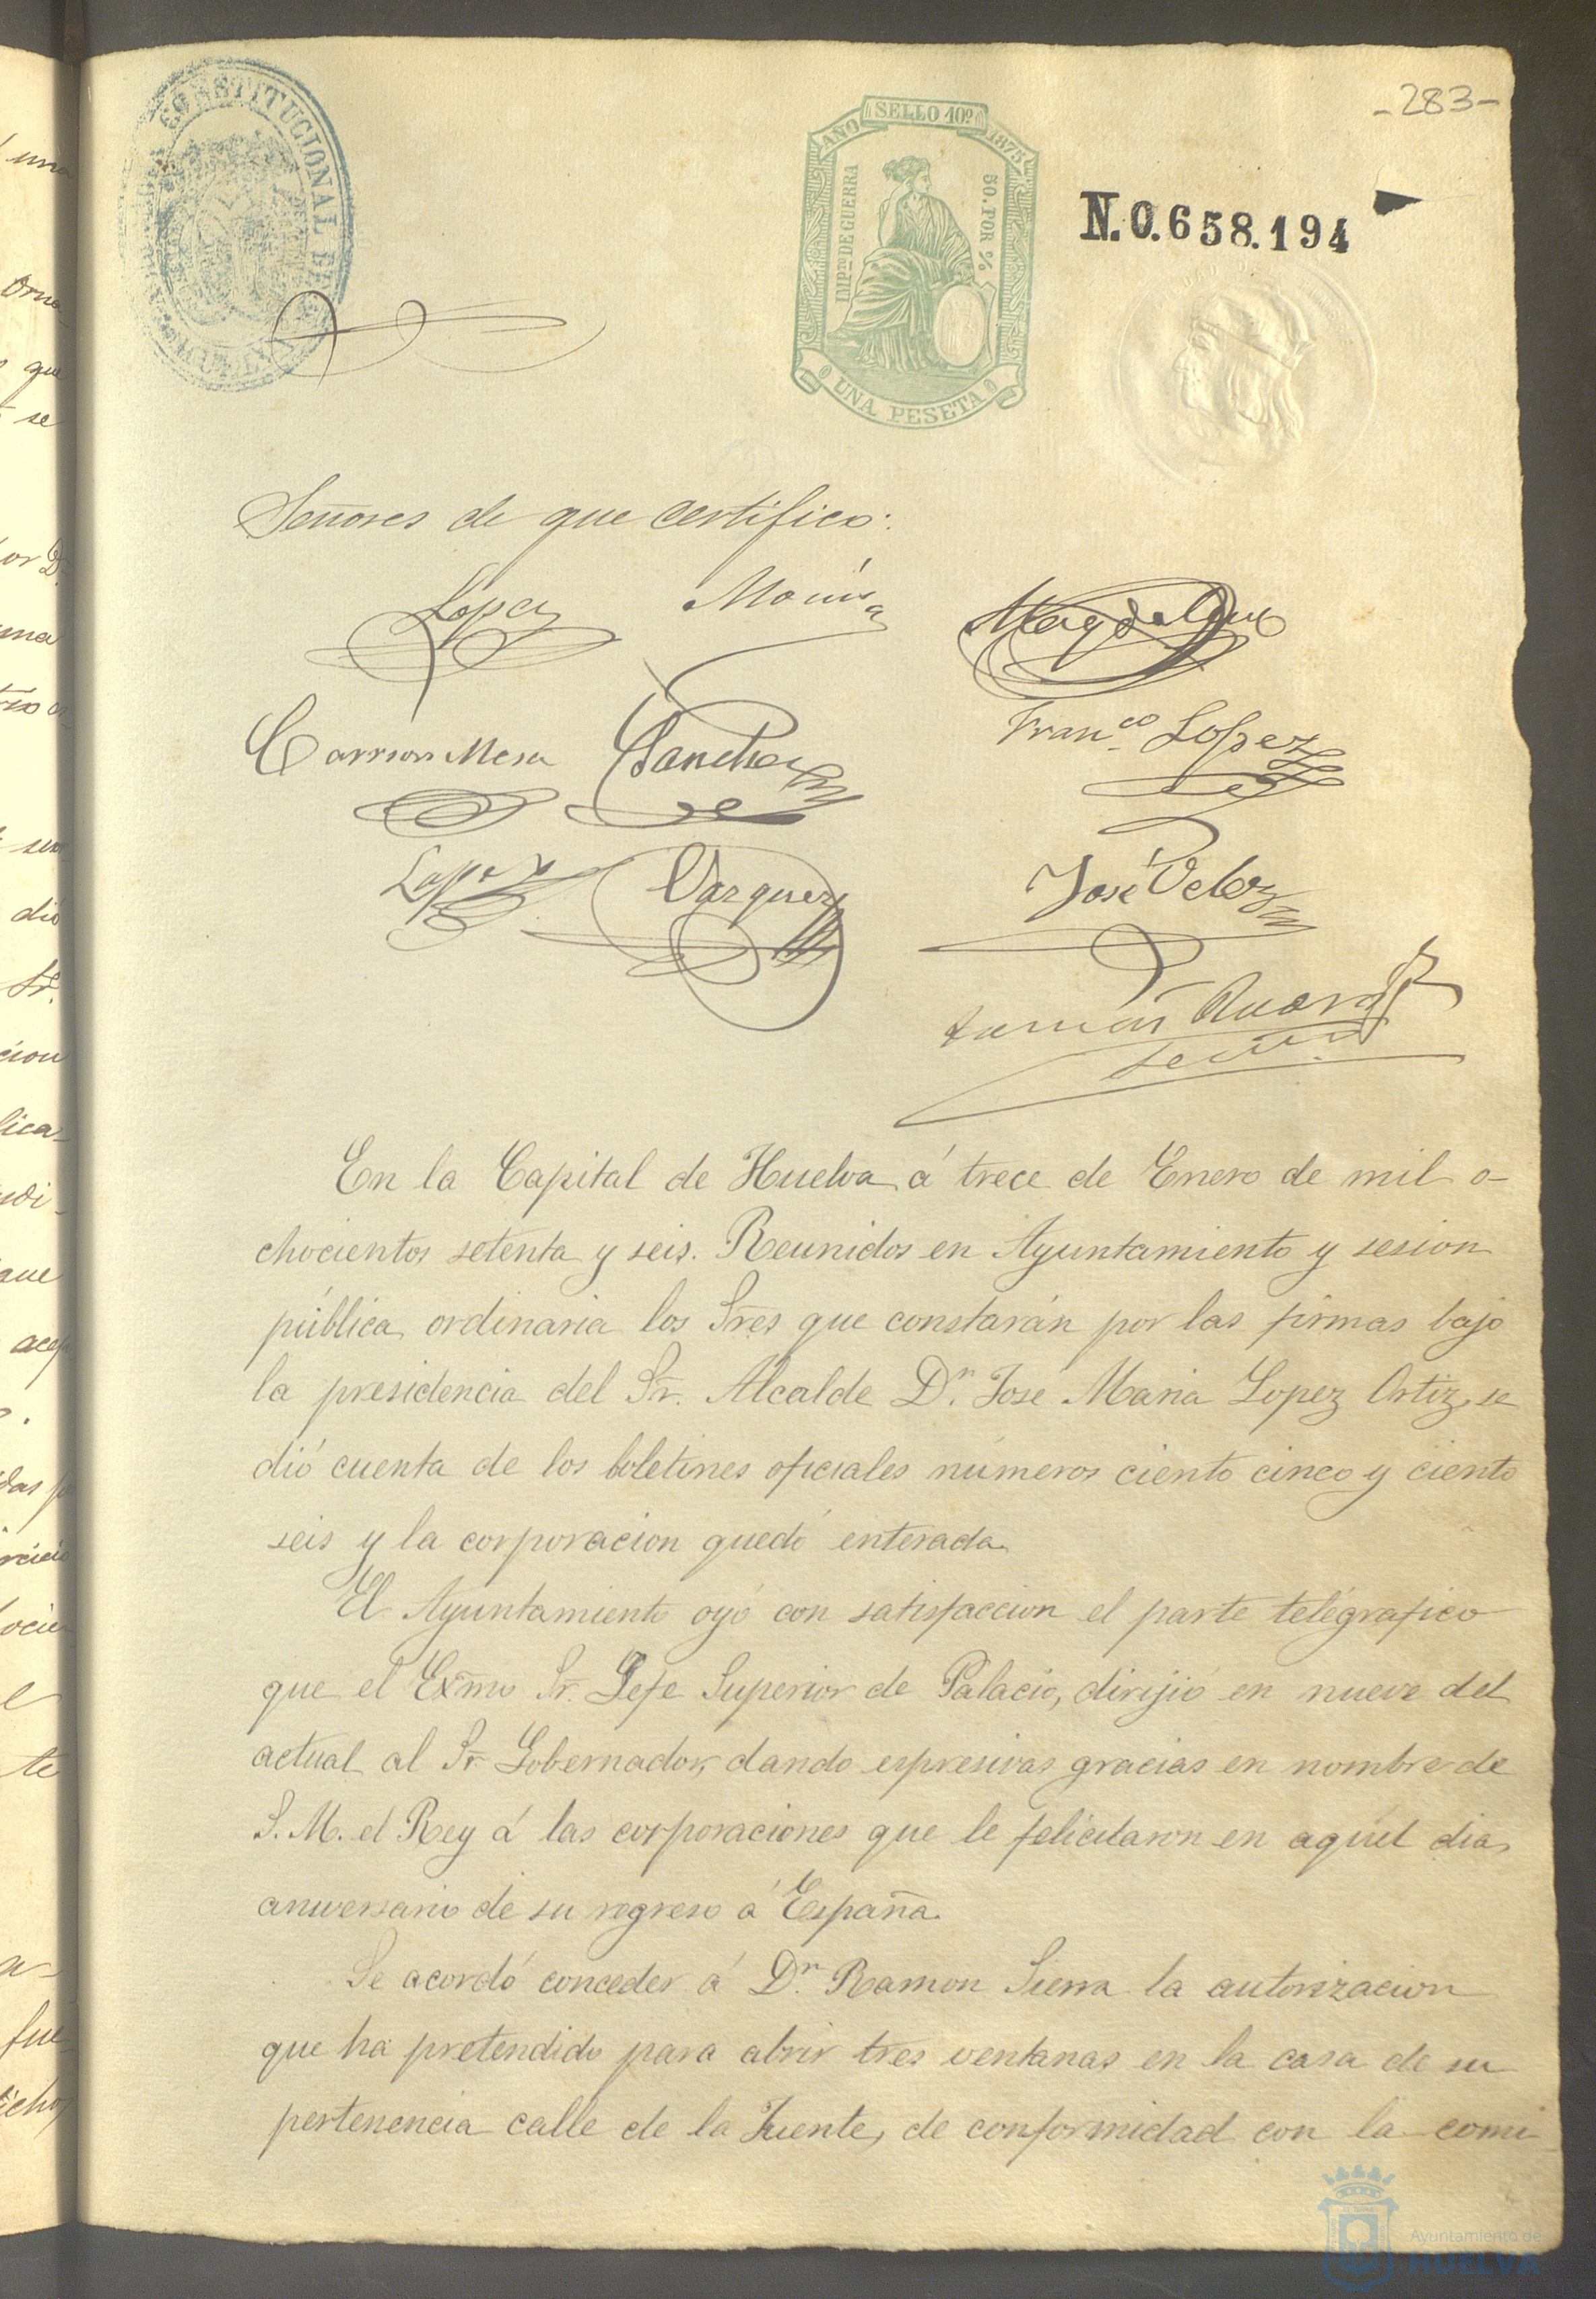 -283-
CONSTITUCIONAL
SELLO 10º
AÑO 1875
IMPto DE GUERRA
50. POR %
UNA PESETA
N.0.658.194
Señores de que certifico:
Lopez
Carrion Mesa Sanchez
Franco Lopez
Lopez Vazquez
José Velez
En la Capital de Huelva á trece de Enero de mil o-
chocientos setenta y seis. Reunidos en Ayuntamiento y sesion
pública ordinaria los Sres que constarán por las firmas bajo
la presidencia del Sr. Alcalde Dn. Jose Maria Lopez Ortiz, se
dió cuenta de los boletines oficiales números ciento cinco y ciento
seis y la corporacion quedó enterada.
El Ayuntamiento oyó con satisfaccion el parte telégrafico
que el Exmo Sr. Gefe Superior de Palacio, dirijió en nueve del
actual al Sr. Gobernador, dando espresivas gracias en nombre de
S. M. el Rey á las corporaciones que le felicitaron en aquel dia,
aniversario de su regreso á España.
Se acordó conceder á Dn. Ramon Sierra la autorizacion
que ha pretendido para abrir tres ventanas en la casa de su
pertenencia calle de la Fuente, de conformidad con la comi
Ayuntamiento de
HUELVA